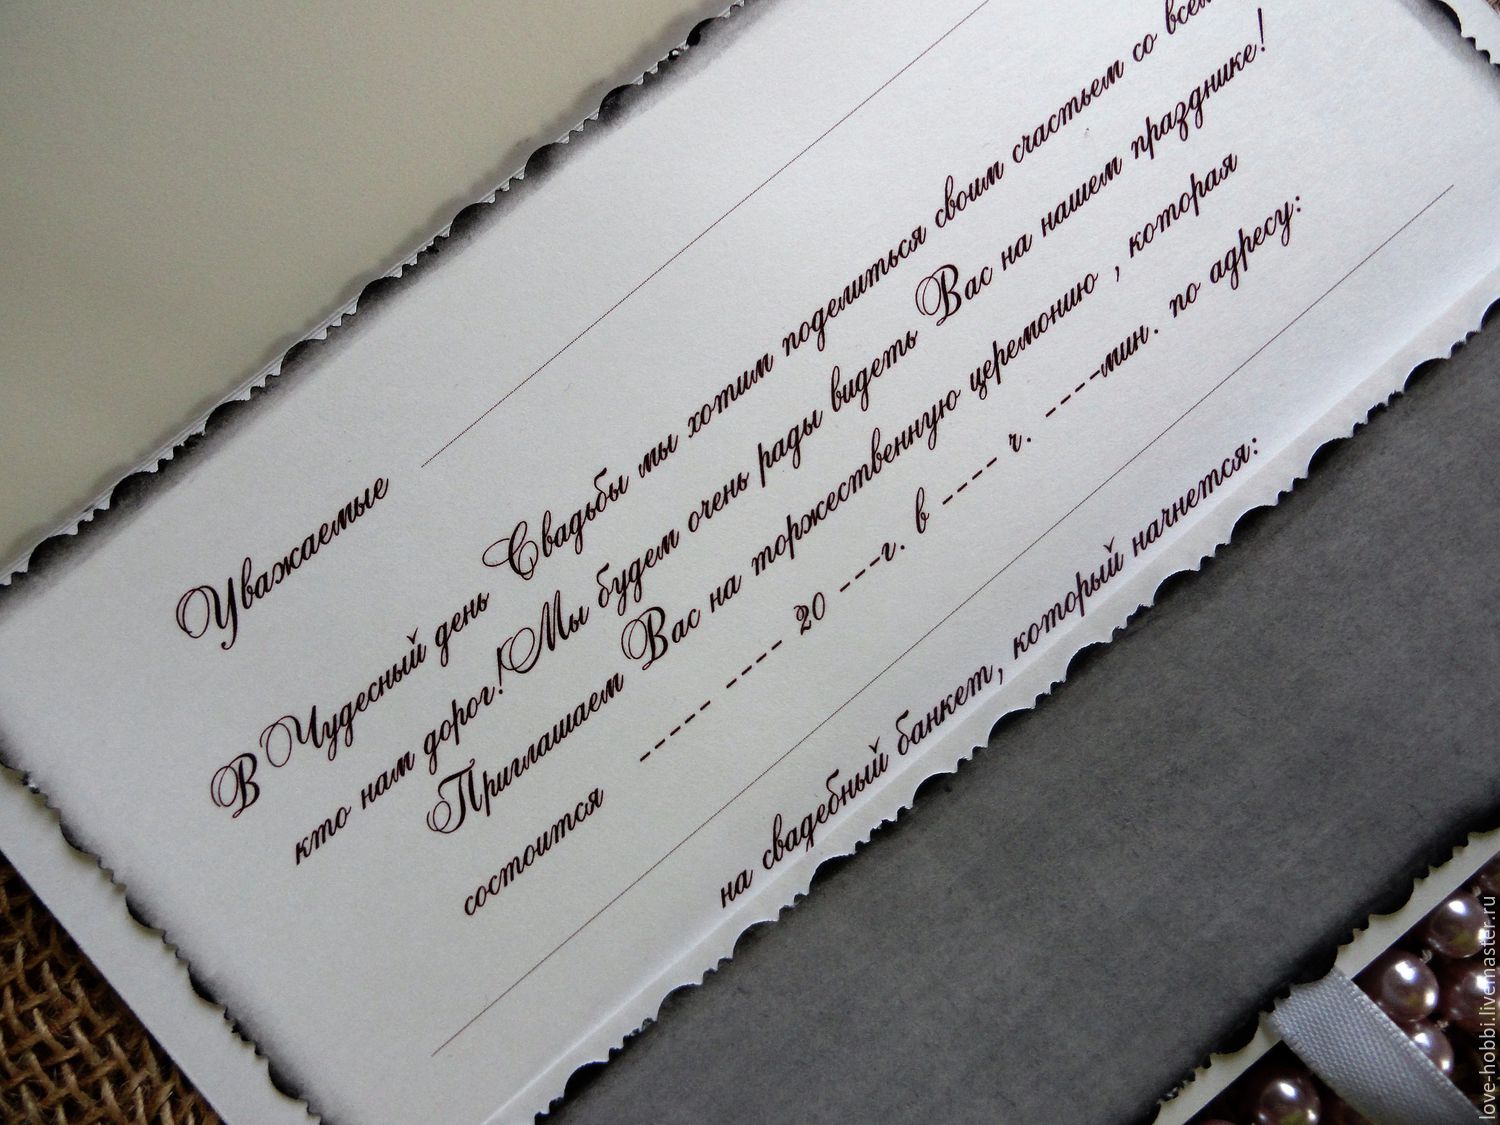 Уважаемые
В Чудесный день Свадьбы мы хотим поделиться своим счастьем со всем
кто нам дорог!Мы будем очень рады видеть Вас на нашем празднике!
Приглашаем Вас на торжественную церемонию , которая
состоится ----- ---- 20 ---г. в ---- ч. ----мин. по адресу:
на свадебный банкет, который начнется:
love-hobbi.livemaster.ru